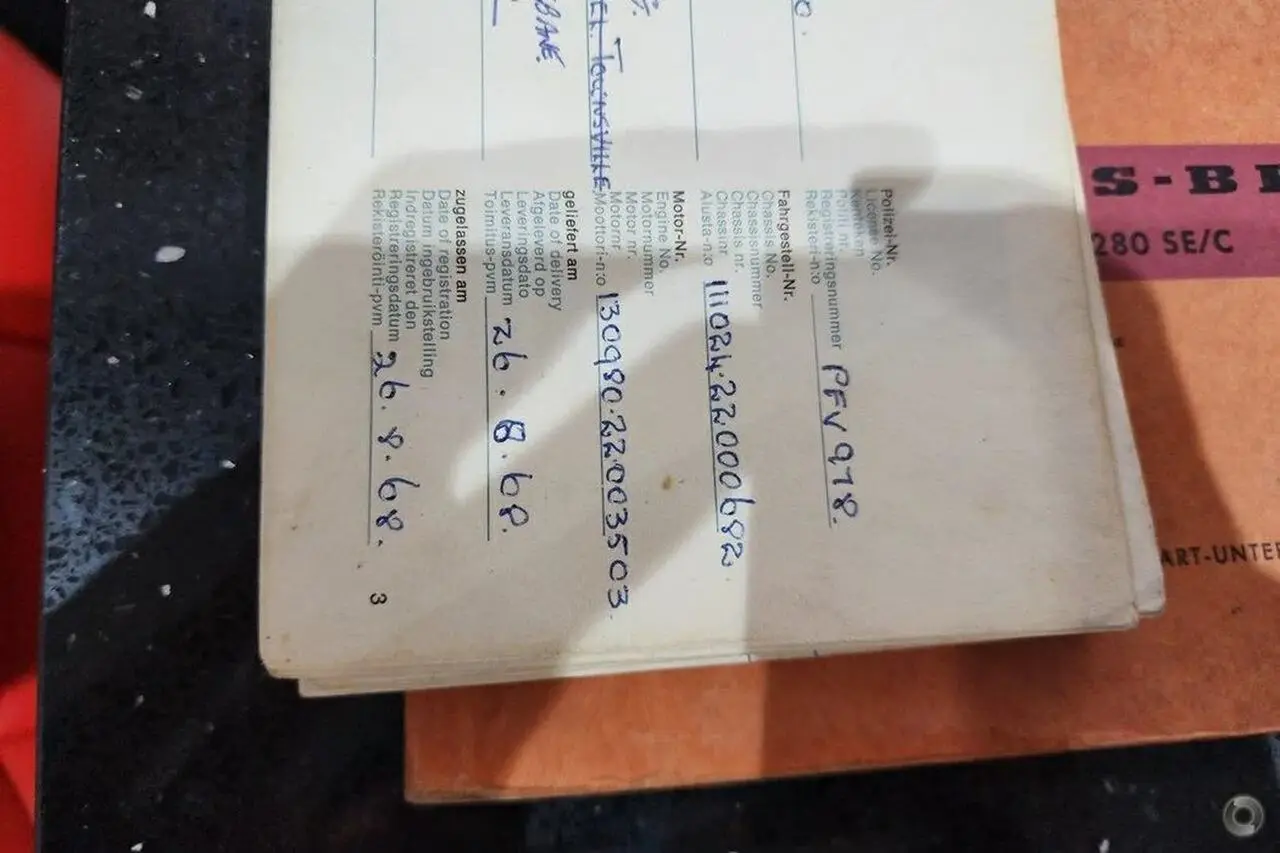 Polizei-Nr.
License No.
Kenteken
Politi nr.
Registreringsnummer
Rekisteri-n:o PFV 978.
Fahrgestell-Nr.
Chassis No.
Chassisnummer
Chassis nr.
Chassinr
Alusta-n:o 111024.22000682
Motor-Nr.
Engine No.
Motornummer
Motor nr.
Motornr
Moottori-n:o 130980.22.003503.
geliefert am
Date of delivery
Afgeleverd op
Leveringsdato
Leveransdatum
Toimitus-pvm 26.8.68.
zugelassen am
Date of registration
Datum ingebruikstelling
Indregistreret den
Registreringsdatum
Rekisteröinti-pvm 26.8.68.
3
TOWNSVILLE
BANE.
S-B
280 SE/C
ART-UNTE